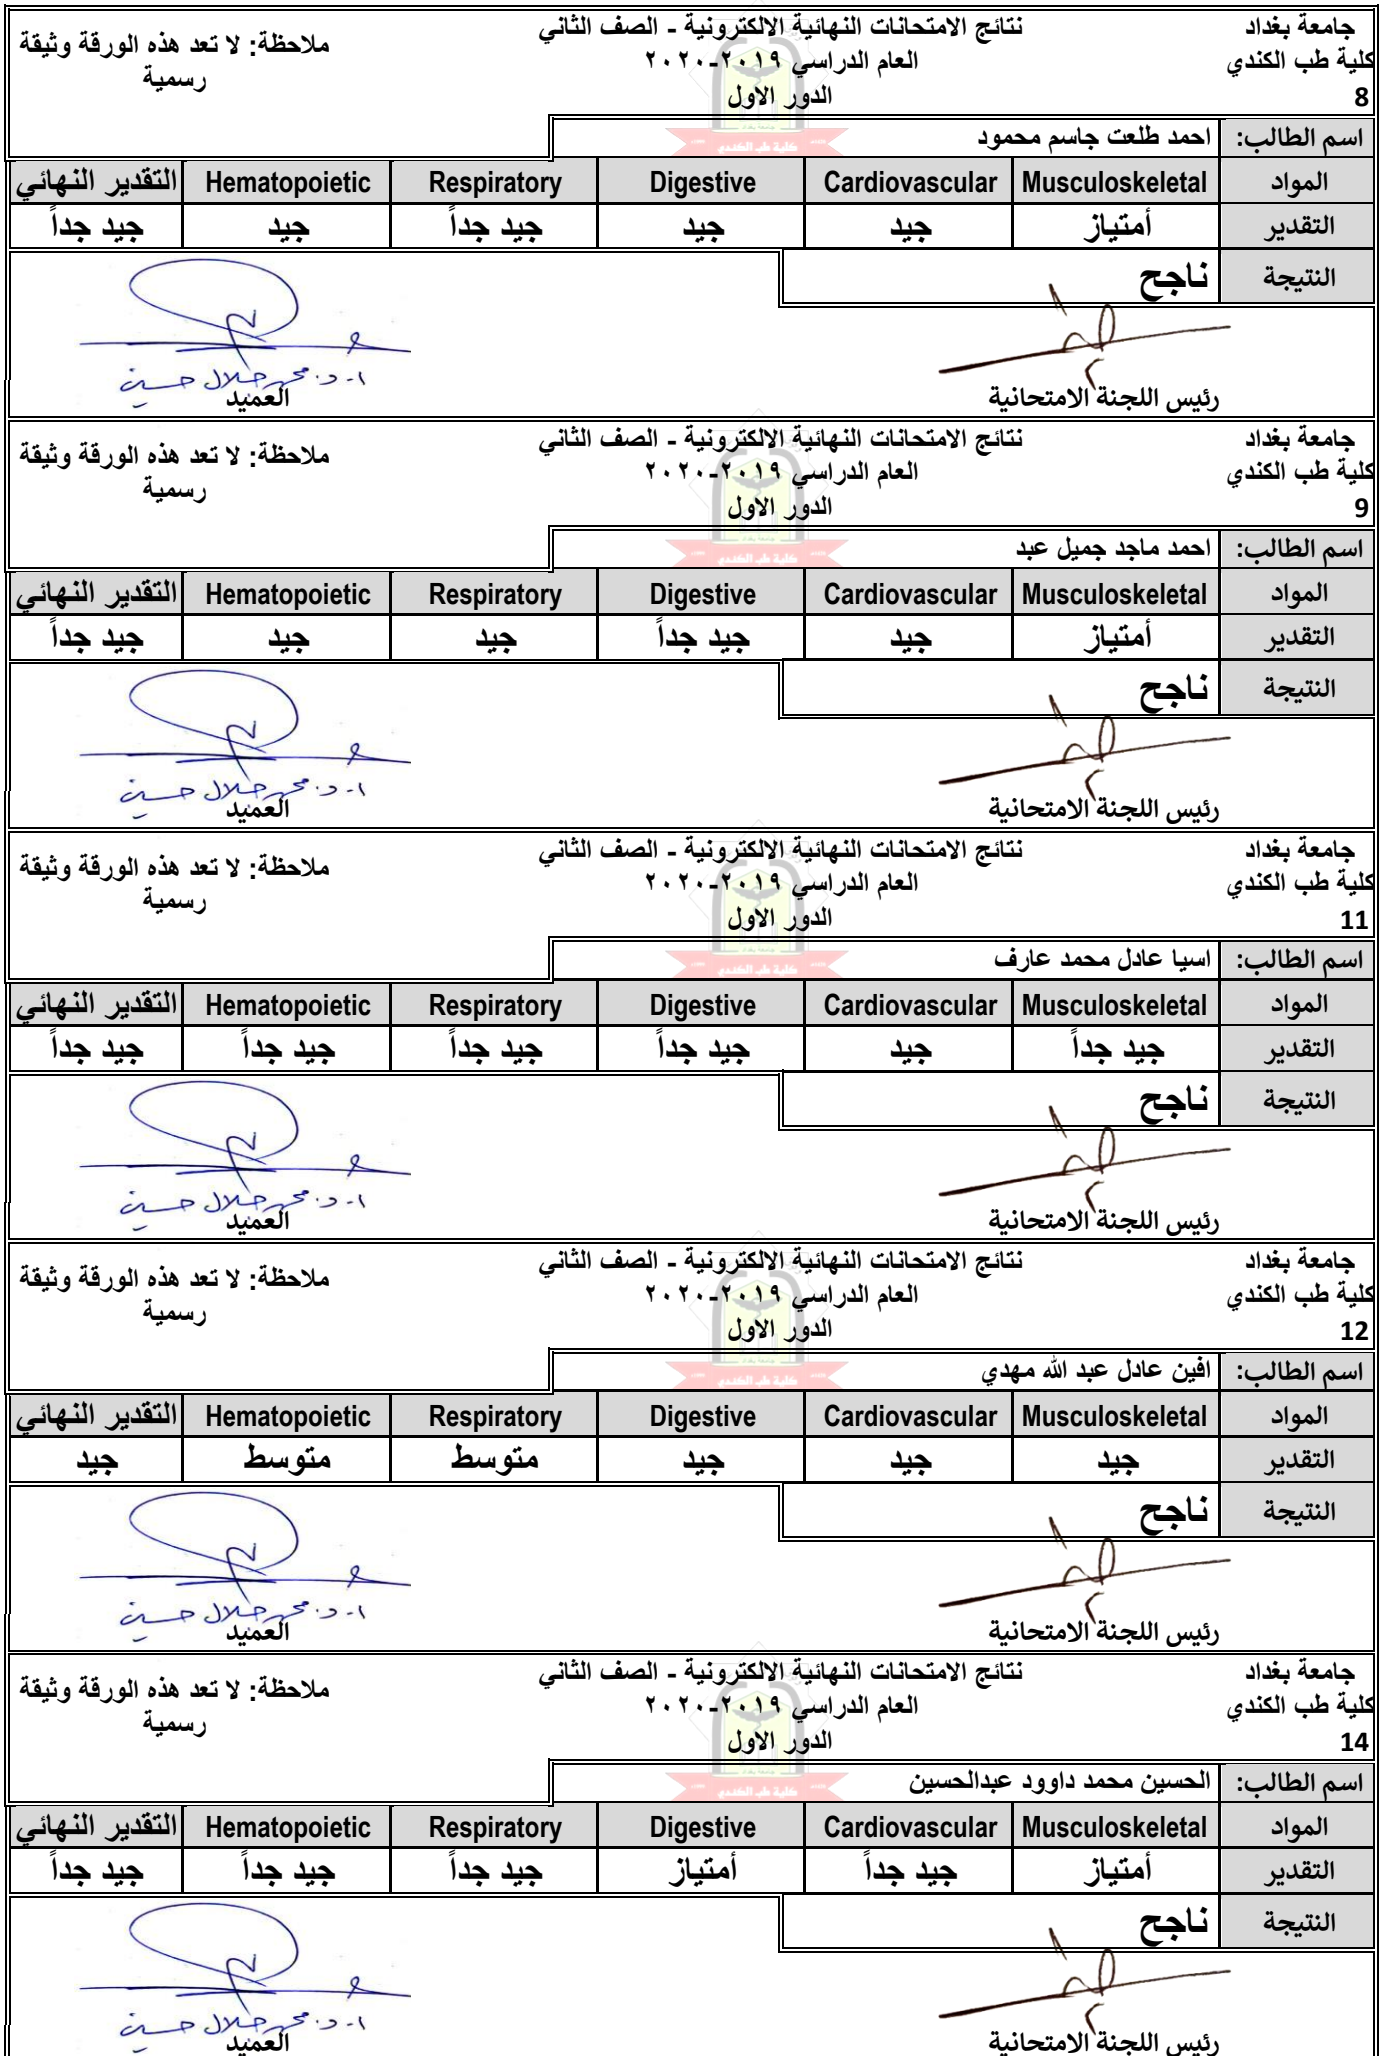 جامعة بغداد
كلية طب الكندي
8
نتائج الامتحانات النهائية الالكترونية - الصف الثاني
العام الدراسي ٢٠١٩-٢٠٢٠
الدور الاول
ملاحظة: لا تعد هذه الورقة وثيقة
رسمية
اسم الطالب: احمد طلعت جاسم محمود
المواد Musculoskeletal Cardiovascular Digestive Respiratory Hematopoietic التقدير النهائي
التقدير أمتياز جيد جيد جيد جداً جيد جيد جداً
النتيجة ناجح
رئيس اللجنة الامتحانية
ا. د. محمد جلال حسين
العميد
جامعة بغداد
كلية طب الكندي
9
نتائج الامتحانات النهائية الالكترونية - الصف الثاني
العام الدراسي ٢٠١٩-٢٠٢٠
الدور الاول
ملاحظة: لا تعد هذه الورقة وثيقة
رسمية
كلية طب الكندي
اسم الطالب: احمد ماجد جميل عبد
المواد Musculoskeletal Cardiovascular Digestive Respiratory Hematopoietic التقدير النهائي
التقدير أمتياز جيد جيد جداً جيد جيد جيد جداً
النتيجة ناجح
رئيس اللجنة الامتحانية
ا. د. محمد جلال حسين
العميد
جامعة بغداد
كلية طب الكندي
11
نتائج الامتحانات النهائية الالكترونية - الصف الثاني
العام الدراسي ٢٠١٩-٢٠٢٠
الدور الاول
ملاحظة: لا تعد هذه الورقة وثيقة
رسمية
كلية طب الكندي
اسم الطالب: اسيا عادل محمد عارف
المواد Musculoskeletal Cardiovascular Digestive Respiratory Hematopoietic التقدير النهائي
التقدير جيد جداً جيد جيد جداً جيد جداً جيد جداً جيد جداً
النتيجة ناجح
رئيس اللجنة الامتحانية
ا. د. محمد جلال حسين
العميد
جامعة بغداد
كلية طب الكندي
12
نتائج الامتحانات النهائية الالكترونية - الصف الثاني
العام الدراسي ٢٠١٩-٢٠٢٠
الدور الاول
ملاحظة: لا تعد هذه الورقة وثيقة
رسمية
كلية طب الكندي
اسم الطالب: افين عادل عبد الله مهدي
المواد Musculoskeletal Cardiovascular Digestive Respiratory Hematopoietic التقدير النهائي
التقدير جيد جيد جيد متوسط متوسط جيد
النتيجة ناجح
رئيس اللجنة الامتحانية
ا. د. محمد جلال حسين
العميد
جامعة بغداد
كلية طب الكندي
14
نتائج الامتحانات النهائية الالكترونية - الصف الثاني
العام الدراسي ٢٠١٩-٢٠٢٠
الدور الاول
ملاحظة: لا تعد هذه الورقة وثيقة
رسمية
كلية طب الكندي
اسم الطالب: الحسين محمد داوود عبدالحسين
المواد Musculoskeletal Cardiovascular Digestive Respiratory Hematopoietic التقدير النهائي
التقدير أمتياز جيد جداً أمتياز جيد جداً جيد جداً جيد جداً
النتيجة ناجح
رئيس اللجنة الامتحانية
ا. د. محمد جلال حسين
العميد